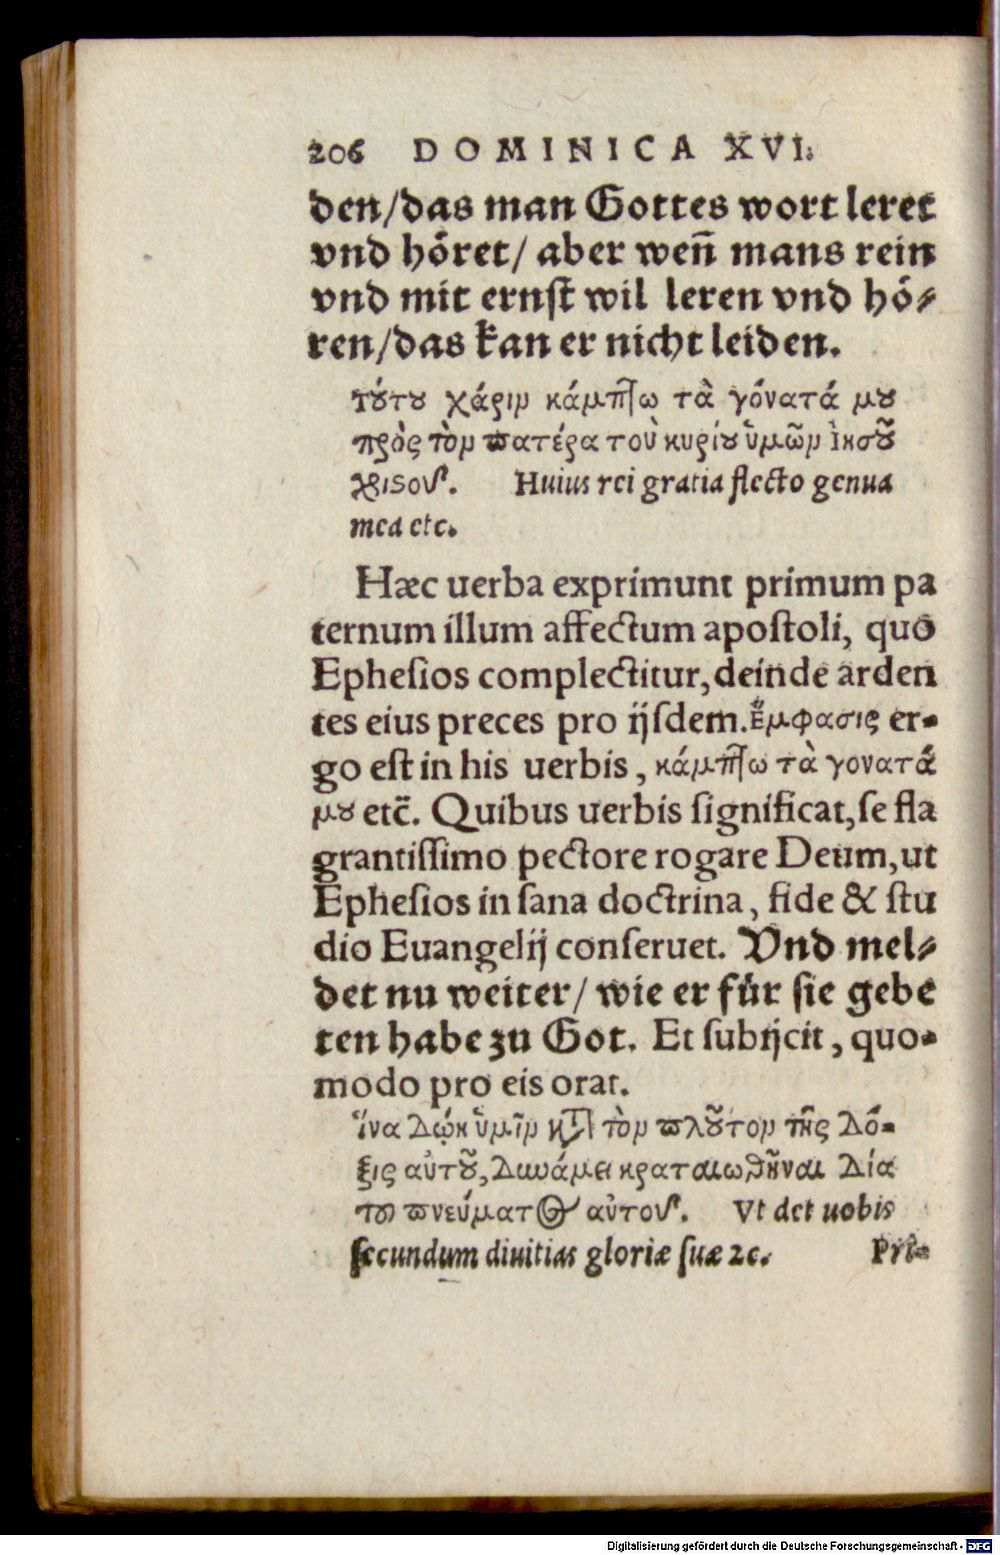 206 DOMINICA XVI.
den/das man Gottes wort leret
vnd hoͤret/ aber weñ mans rein
vnd mit ernſt wil leren vnd hoͤ⸗
ren/das kan er nicht leiden.
τȣ́τȣ χάριν κάμπτω τὰ γόνατά μȣ
πρὸς τὸν πατέρα τοὺ κυρίȣ ὑμῶν ἰησȣ͂
χριϛοῦ. Huius rei gratia flecto genua
mea etc.
Hæc uerba exprimunt primum pa
ternum illum affectum apoſtoli, quo
Epheſios complectitur, deinde arden
tes eius preces pro ijſdem. ἔμφασις er-
go eſt in his uerbis, κάμπτω τὰ γονατά
μȣ etc̃. Quibus uerbis ſignificat, ſe fla
grantiſſimo pectore rogare Deum, ut
Epheſios in ſana doctrina, fide & ſtu
dio Euangelij conſeruet. Vnd mel⸗
det nu weiter/ wie er fuͤr ſie gebe
ten habe zu Got. Et ſubijcit, quo-
modo pro eis orat.
ἵνα δώῃ ὑμῖν κτ̃ τὸν πλȣ͂τον τῆς δό-
ξις αὐτȣ͂, δυνάμει κραταιωθῆναι δία
τοῦ πνεύματος αὐτοῦ. Vt det uobis
ſecundum diuitias gloriæ ſuæ ⁊c. Pri-
Digitalisierung gefördert durch die Deutsche Forschungsgemeinschaft - DFG